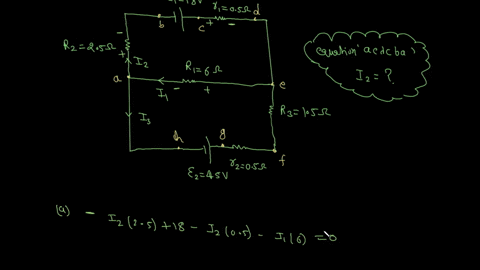 r₁=0.5Ω
b
c
d
R₂=2.5Ω
I₂
R₁=6Ω
a
e
I₁
I₃
R₃=1.5Ω
h
g
f
r₂=0.5Ω
ε₂=45V
equation 'aedcba'
I₂ = ?
(a) - I₂(2.5)+18 - I₂(0.5) - I₁(6) = 0